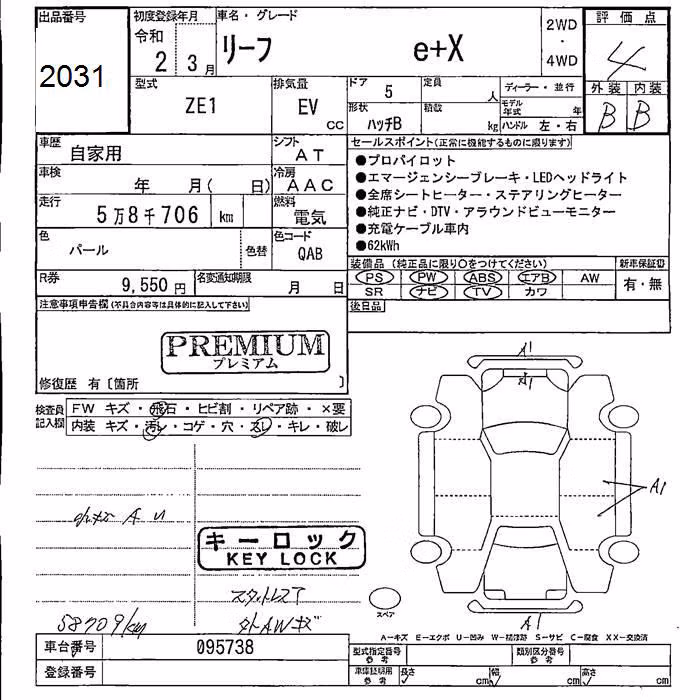 出品番号
2031
初度登録年月
令和
2 3月
車名・グレード
リーフ e+X
2WD
・
4WD
評価点
4
外装 内装
B B
型式
ZE1
排気量
EV
CC
ドア 5
定員 人
形状 ハッチB
積載 kg
ディーラー・並行
モデル年式 年
ハンドル 左・右
車歴
自家用
シフト
AT
車検
年 月( 日)
冷房
AAC
走行
5万8千706 km
燃料
電気
色
パール
色替
色コード
QAB
R券
9,550円
名変通知期限
月 日
セールスポイント(正常に機能するものに限ります)
●プロパイロット
●エマージェンシーブレーキ・LEDヘッドライト
●全席シートヒーター・ステアリングヒーター
●純正ナビ・DTV・アラウンドビューモニター
●充電ケーブル車内
●62kWh
装備品 (純正品に限り○をつけてください)
PS PW ABS エアB AW
SR ナビ TV カワ
新車保証書
有・無
後日品
注意事項申告欄(不具合内容等は具体的に記入して下さい)
PREMIUM
プレミアム
修復歴 有〔箇所 〕
検査員記入欄
FW キズ・飛石・ヒビ割・リペア跡・×要
内装 キズ・汚レ・コゲ・穴・スレ・キレ・破レ
キーロック
KEY LOCK
58709km
A1
A1
A1
A1
スペア
A−キズ E−エクボ U−凹み W−補修跡 S−サビ C−腐食 XX−交換済
車台番号
095738
登録番号
型式指定番号
参考
類別区分番号
参考
車庫証明用
参考
長さ cm
幅 cm
高さ cm